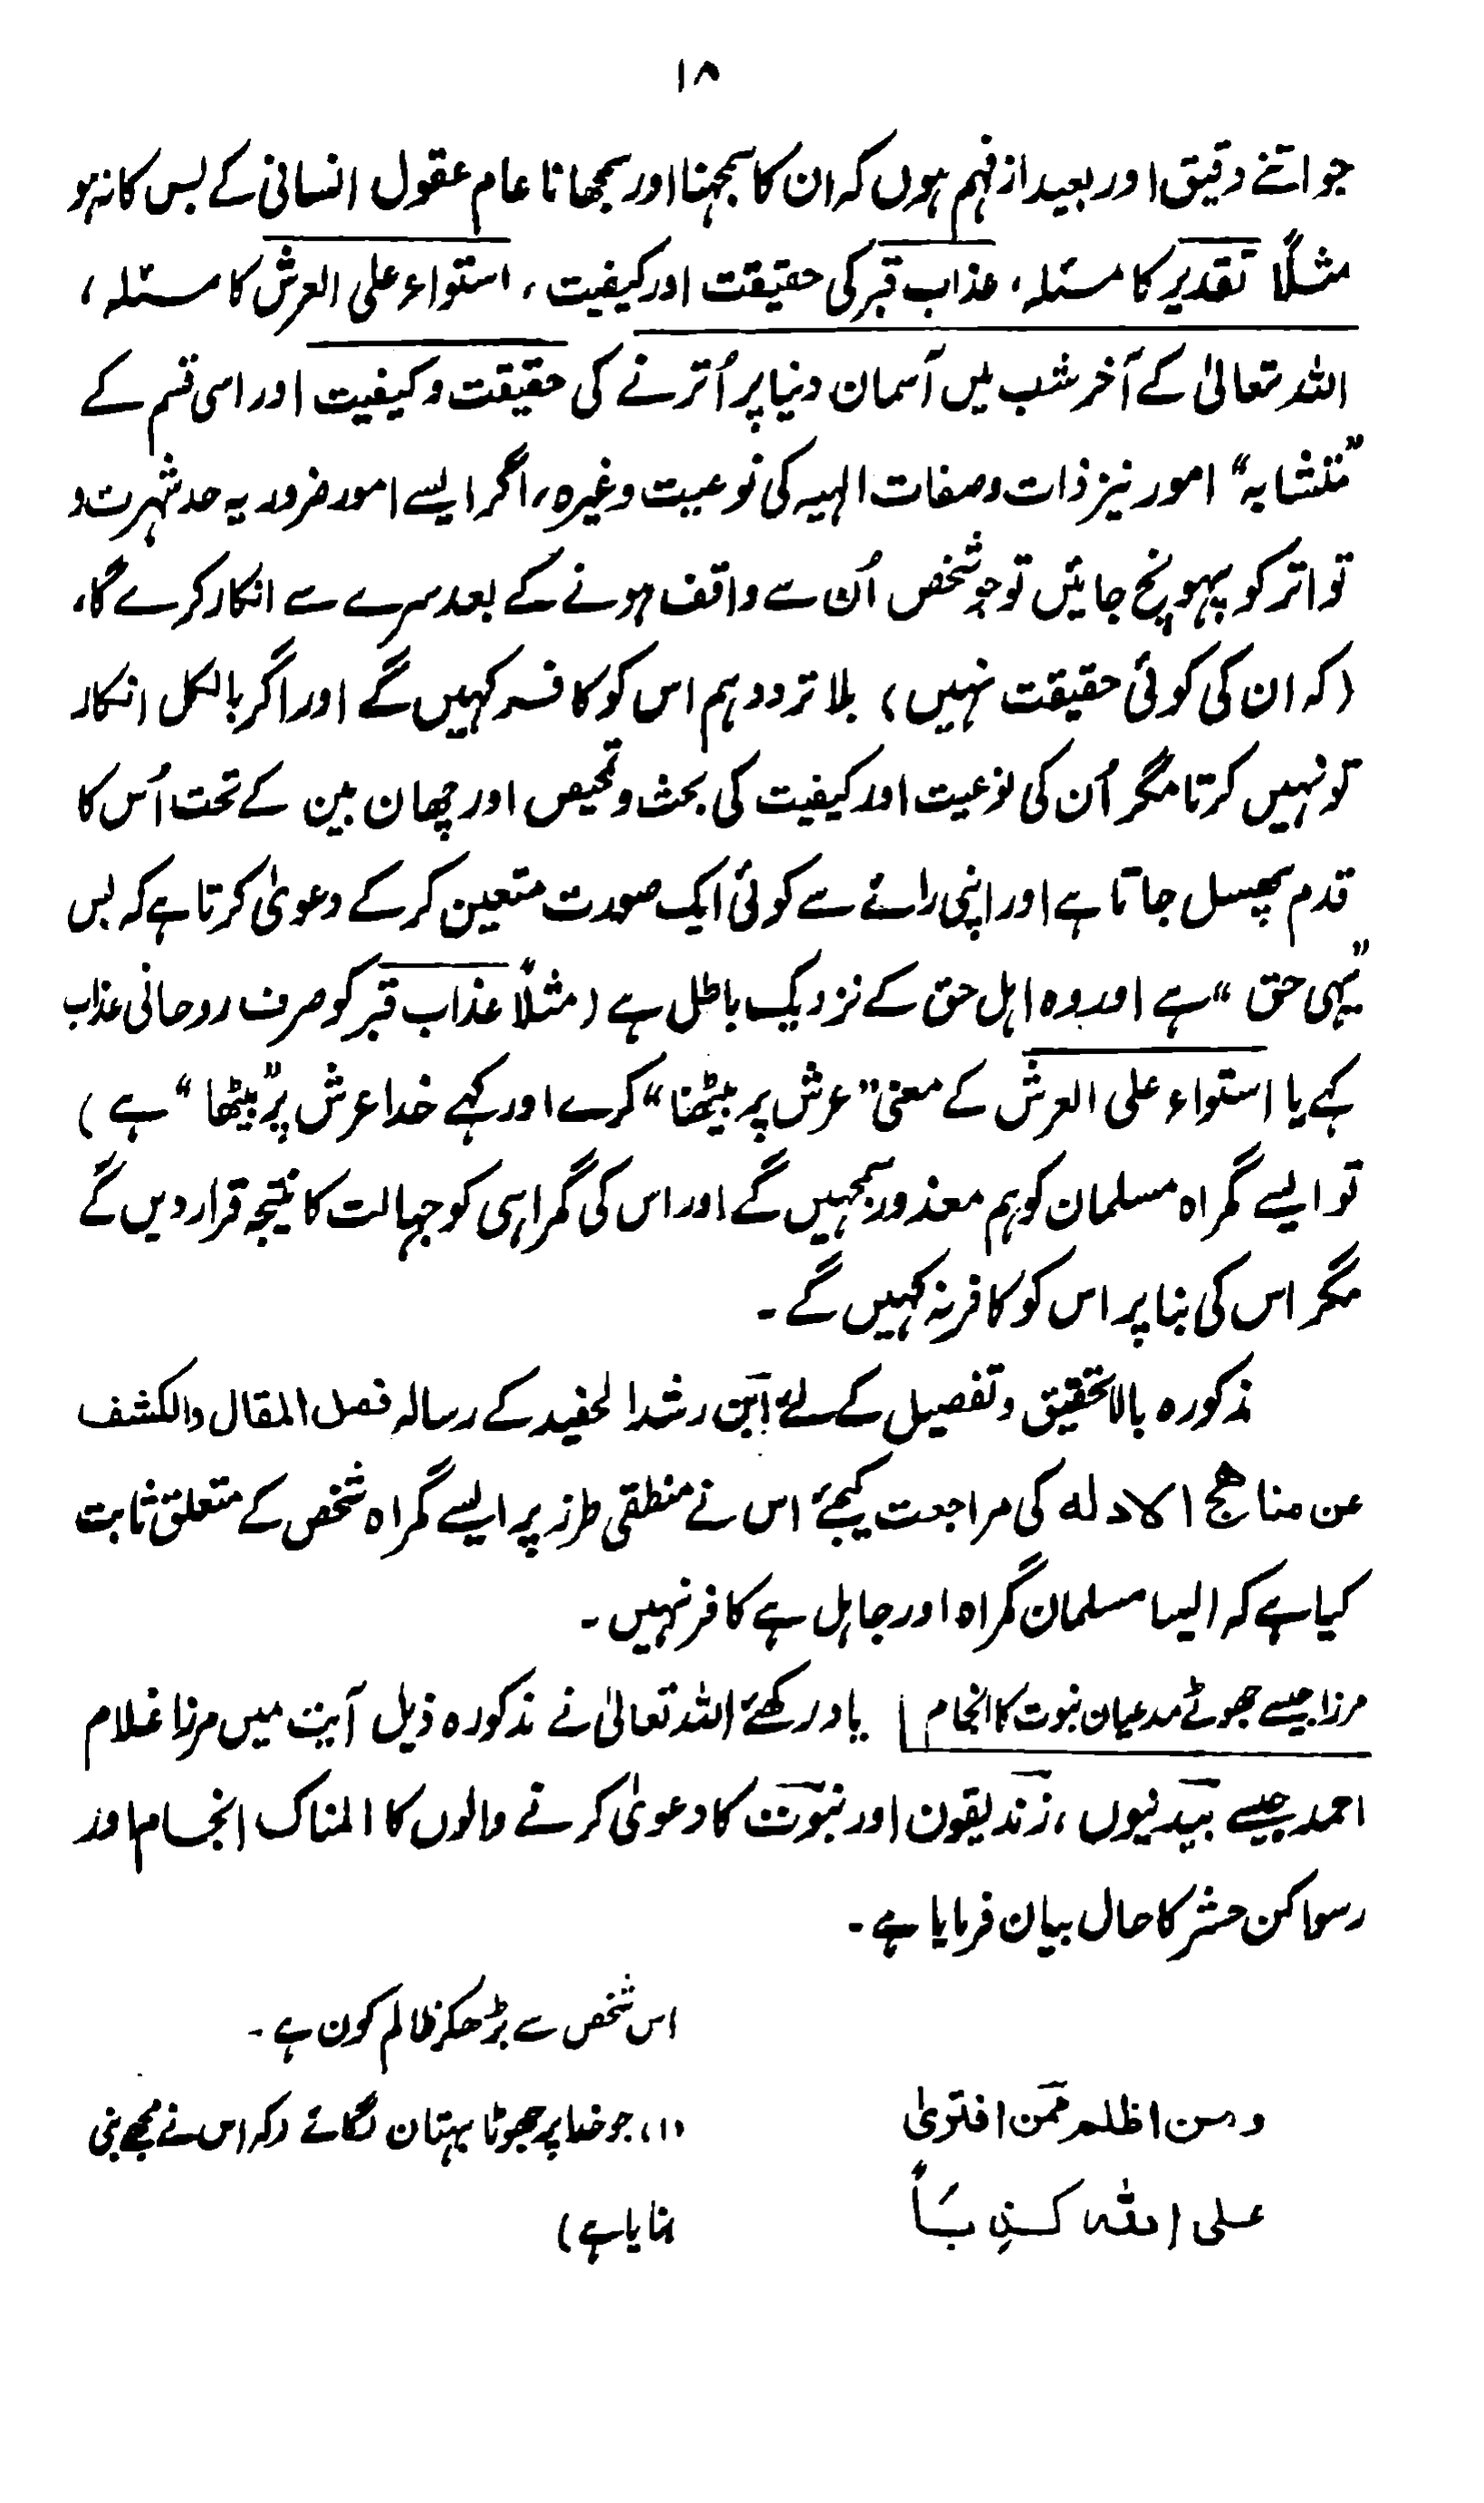 ۱۸
جو اتنے دقیق اور بعید از فہم ہوں کہ ان کا سمجہنا اور سمجھانا عام عقول انسانی کے بس کا نہ ہو
مثلاً تقدیر کا مسئلہ، عذاب قبر کی حقیقت اور کیفیت، استواء علی العرش کا مسئلہ،
اللہ تعالیٰ کے آخر شب میں آسمان دنیا پر اُترنے کی حقیقت و کیفیت اور اسی قسم کے
”متشابہ“ امور نیز ذات و صفات الہیہ کی نوعیت وغیرہ، اگر ایسے امور ضروریہ حد شہرت و
تواتر کو پہونچ جائیں تو جو شخص اُن سے واقف ہونے کے بعد سرے سے انکار کرے گا،
(کہ ان کی کوئی حقیقت نہیں) بلا تردد ہم اس کو کافر کہیں گے اور اگر بالکل انکار
تو نہیں کرتا مگر اُن کی نوعیت اور کیفیت کی بحث و تمحیص اور چھان بین کے تحت اُس کا
قدم پھسل جاتا ہے اور اپنی رائے سے کوئی ایک صورت متعین کر کے دعویٰ کرتا ہے کہ بس
”یہی حق“ ہے اور وہ اہل حق کے نزدیک باطل ہے (مثلاً عذاب قبر کو صرف روحانی عذاب
کہے یا استواء علی العرش کے معنی ”عرش پر بیٹھنا“ کرے اور کہے خدا عرش پر ”بیٹھا“ ہے)
تو ایسے گمراہ مسلمان کو ہم معذور سمجہیں گے اور اس کی گمراہی کو جہالت کا نتیجہ قرار دیں گے
مگر اس کی بنا پر اس کو کافر نہ کہیں گے۔
مذکورہ بالا تحقیق و تفصیل کے لئے ابن رشد الحفید کے رسالہ فصل المقال والکشف
عن مناهج الادله کی مراجعت کیجئے اس نے منطقی طرز پر ایسے گمراہ شخص کے متعلق ثابت
کیا ہے کہ ایسا مسلمان گمراہ اور جاہل ہے کافر نہیں۔
مرزا جیسے جھوٹے مدعیان نبوت کا انجام یاد رکھئے اللہ تعالیٰ نے مذکورہ ذیل آیت میں مرزا غلام
احمد جیسے بیدنیوں، زندیقون اور نبوت کا دعویٰ کرنے والوں کا المناک انجام اور
رسوا کن حشر کا حال بیان فرمایا ہے۔
اس شخص سے بڑھکر ظالم کون ہے۔
ومن اظلم ممن افتریٰ (۱) جو خدا پر جھوٹا بہتان لگائے (کہ اس نے مجھے نبی
علی الله کذباً بنایا ہے)